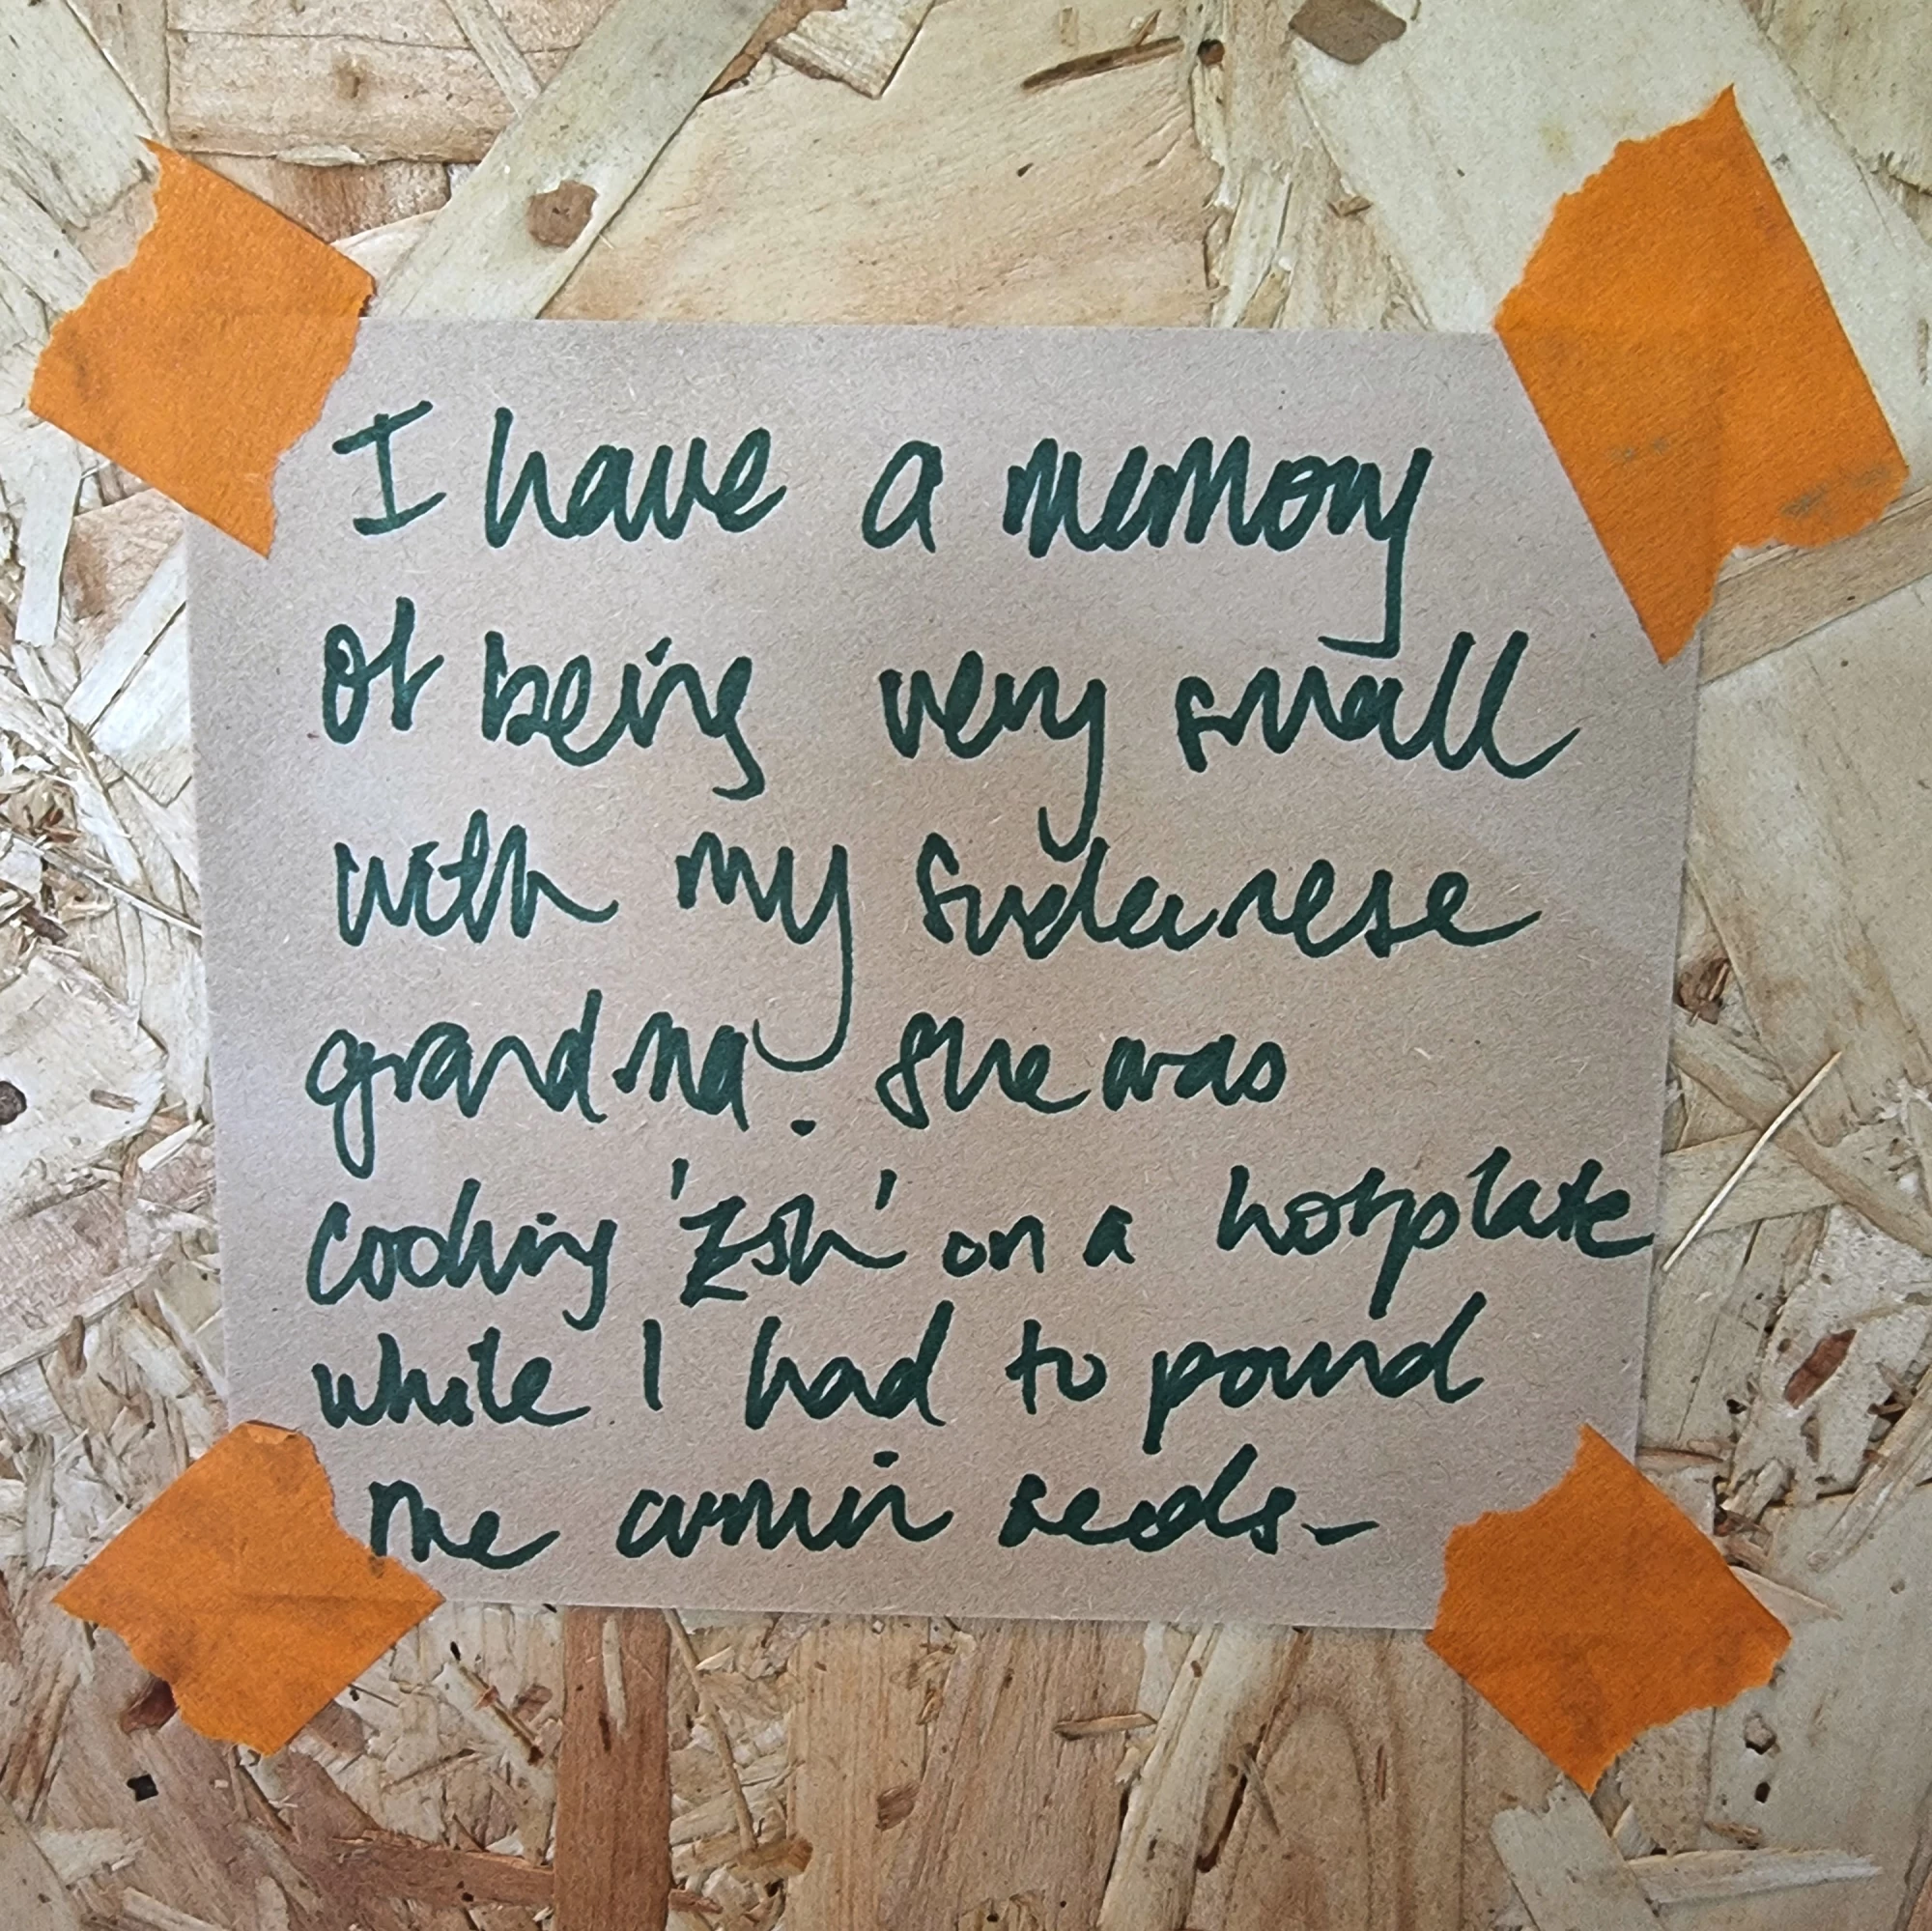 I have a memory
of being very small
with my Sudanese
grandma. She was
cooking 'Zsh' on a hotplate
while I had to pound
the cumin seeds-